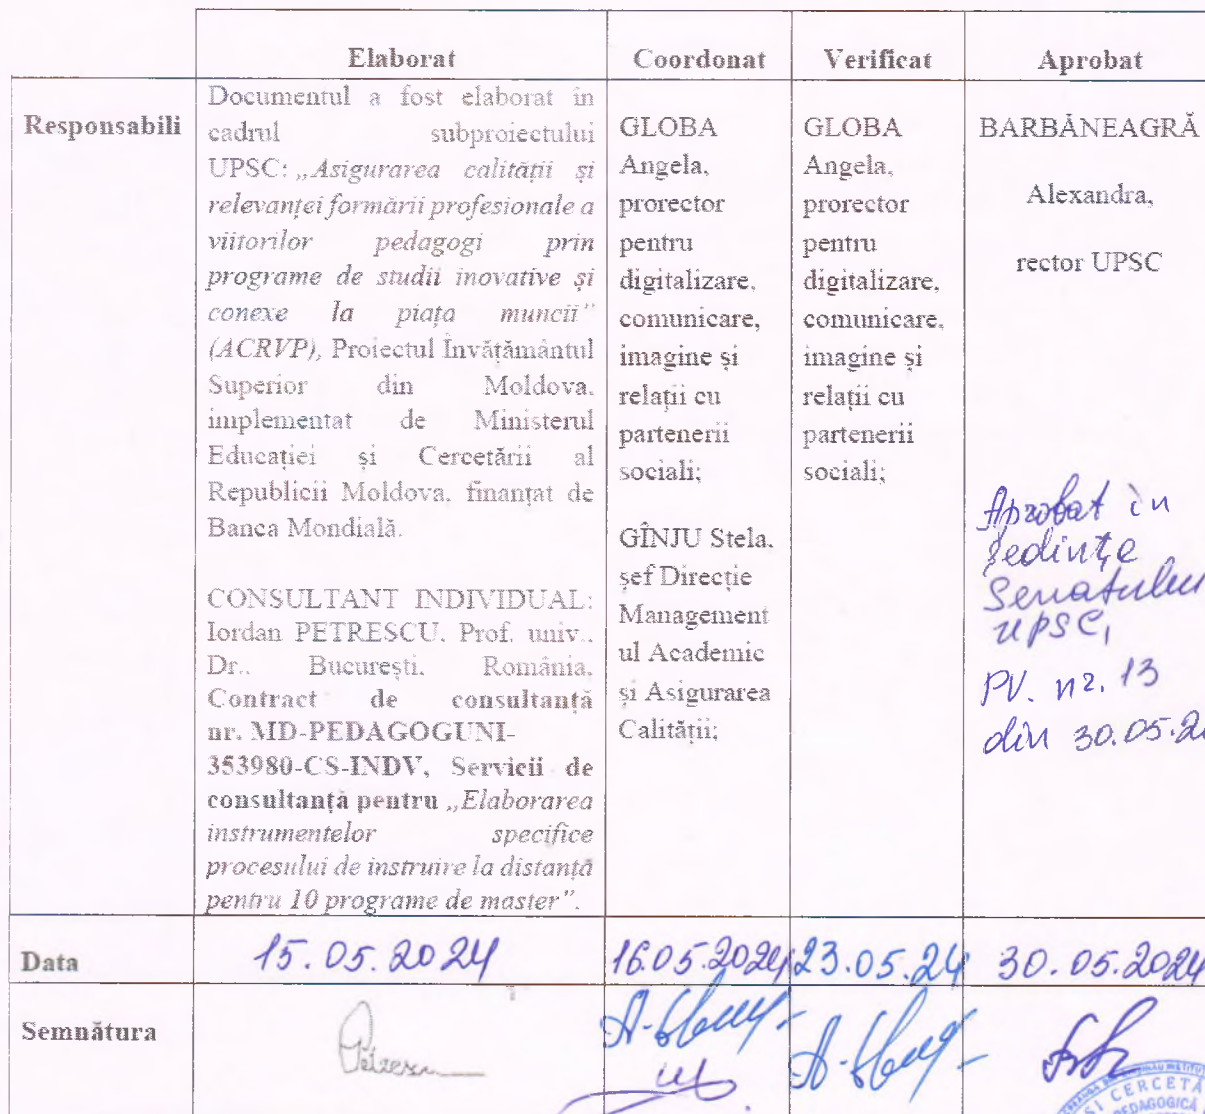 Elaborat
Coordonat
Verificat
Aprobat
Responsabili
Documentul a fost elaborat în
cadrul subproiectului
UPSC: „Asigurarea calității și
relevanței formării profesionale a
viitorilor pedagogi prin
programe de studii inovative și
conexe la piața muncii”
(ACRVP), Proiectul Învățământul
Superior din Moldova,
implementat de Ministerul
Educației și Cercetării al
Republicii Moldova, finanțat de
Banca Mondială.
CONSULTANT INDIVIDUAL:
Iordan PETRESCU, Prof. univ.,
Dr., București, România,
Contract de consultanță
nr. MD-PEDAGOGUNI-
353980-CS-INDV, Servicii de
consultanță pentru „Elaborarea
instrumentelor specifice
procesului de instruire la distanță
pentru 10 programe de master”.
GLOBA
Angela,
prorector
pentru
digitalizare,
comunicare,
imagine și
relații cu
partenerii
sociali;
GÎNJU Stela,
șef Direcție
Management
ul Academic
și Asigurarea
Calității;
GLOBA
Angela,
prorector
pentru
digitalizare,
comunicare,
imagine și
relații cu
partenerii
sociali;
BARBĂNEAGRĂ
Alexandra,
rector UPSC
Aprobat în
ședința
Senatului
UPSC,
PV. nr. 13
din 30.05.2
Data
15.05.2024
16.05.2024
23.05.24
30.05.2024
Semnătura
ȘI CERCETĂ
PEDAGOGICĂ